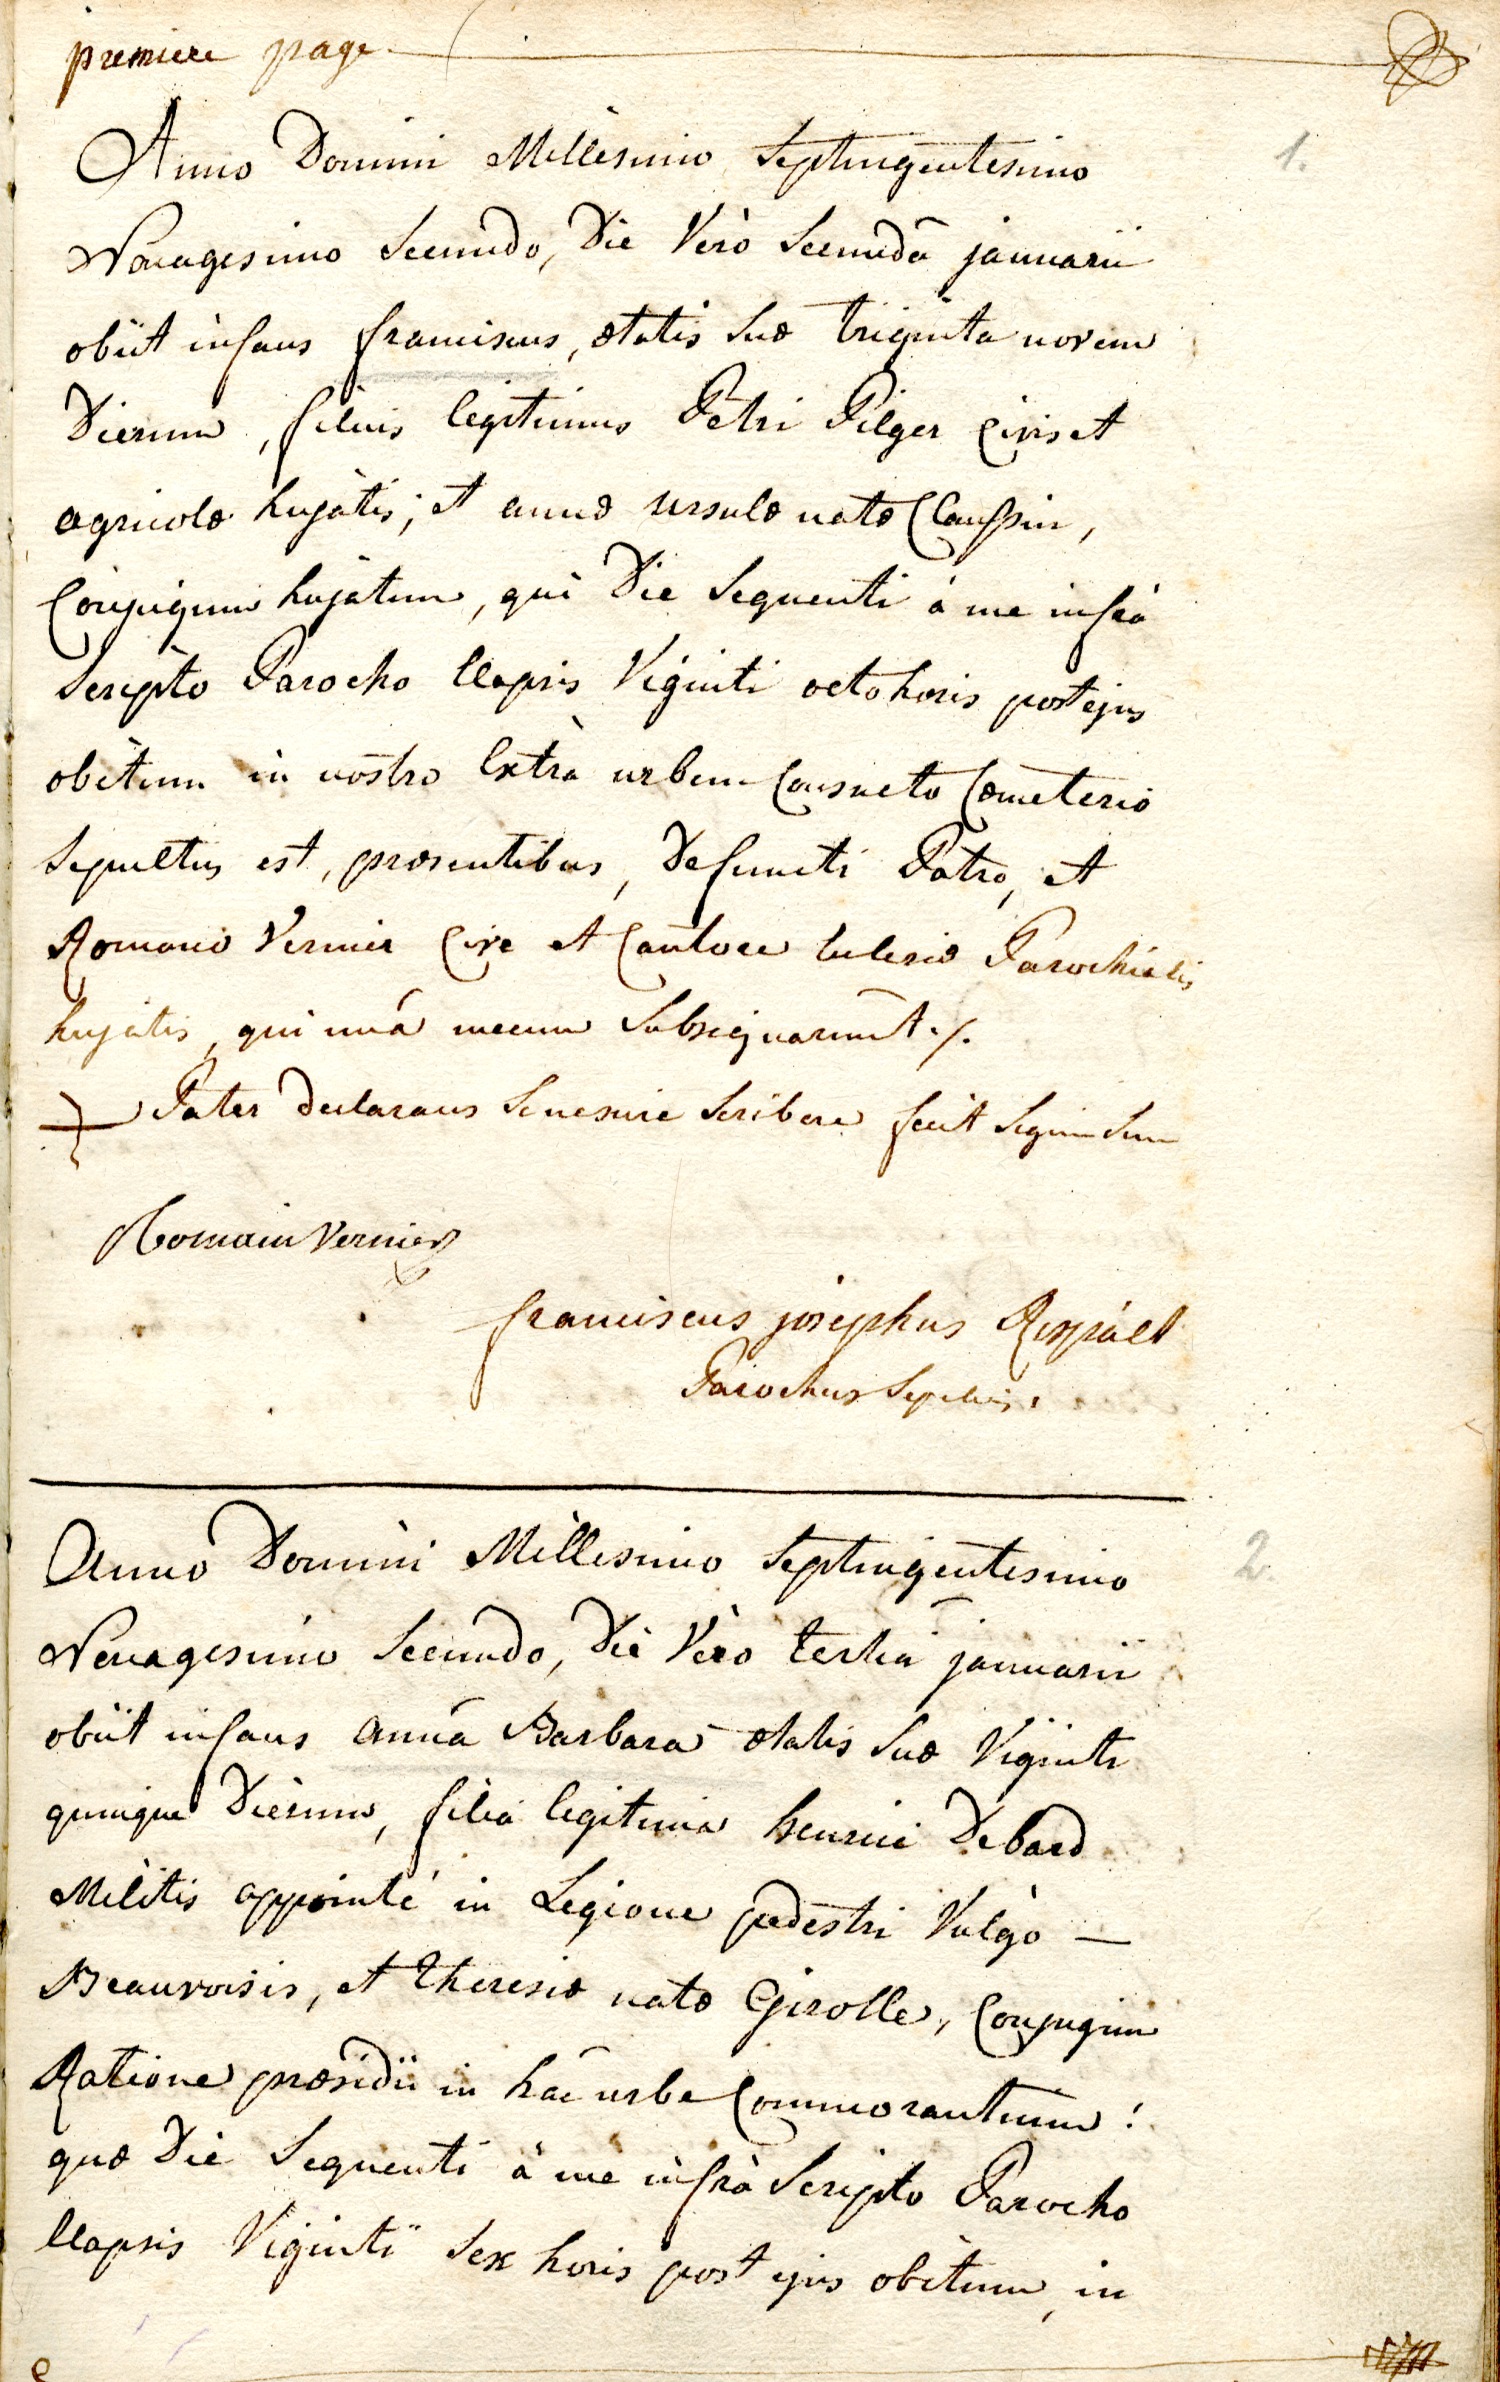 premiere page
1.
Anno Domini Millesimo Septingentesimo
Nonagesimo Secundo, Die Vero Secundâ januarii
obiit infans franciscus, ætatis suæ triginta novem
Dierum, filius legitimus Petri Pilger Civis et
agricolæ hujatis, et annæ ursulæ natæ Claussin,
Conjugum hujatum, qui Die Sequenti à me infrà
Scripto Parocho Elapsis Viginti octo horis post ejus
obitum in nostro Extrà urbem Consueto Cœmeterio
Sepultus est, præsentibus, Defuncti Patre, et
Romano Vernier Cive et Cantore Ecclesiæ Parochialis
hujatis, qui unà mecum Subsignarunt ./.
Pater declarans Se nescire Scribere fecit Signum Suum
Romain Vernier
franciscus josephus
Parochus
2.
Anno Domini Millesimo Septingentesimo
Nonagesimo Secundo, Die Vero tertiâ januarii
obiit infans anna Barbara ætatis suæ Viginti
quinque Dierum, filia legitima henrici Debard
Militis appointé in Legione pedestri Vulgò —
Beauvoisis, et theresiæ natæ Girolle, Conjugum
Ratione præsidii in hac urbe Commorantium:
quæ Die Sequenti à me infrà Scripto Parocho
Elapsis Viginti Sex horis post ejus obitum, in